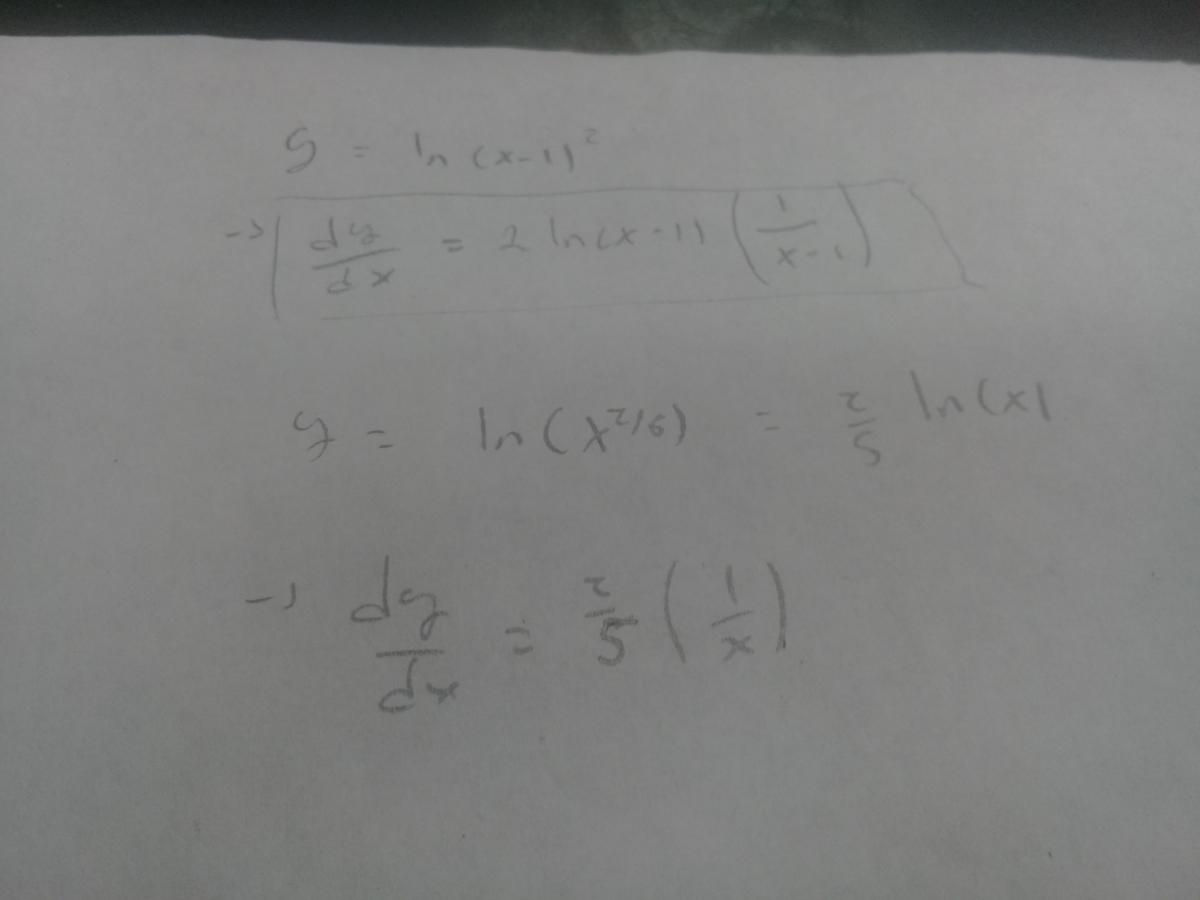 y = ln(x-1)²
→ dy/dx = 2 ln(x-1) (1/(x-1))
y = ln(x^(2/5)) = 2/5 ln(x)
→ dy/dx = 2/5 (1/x)